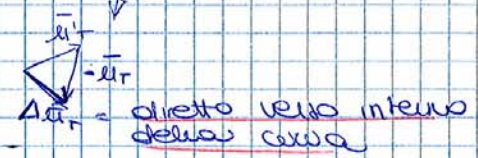 ū'T
-ūT
ΔūT = diretto verso interno
della curva